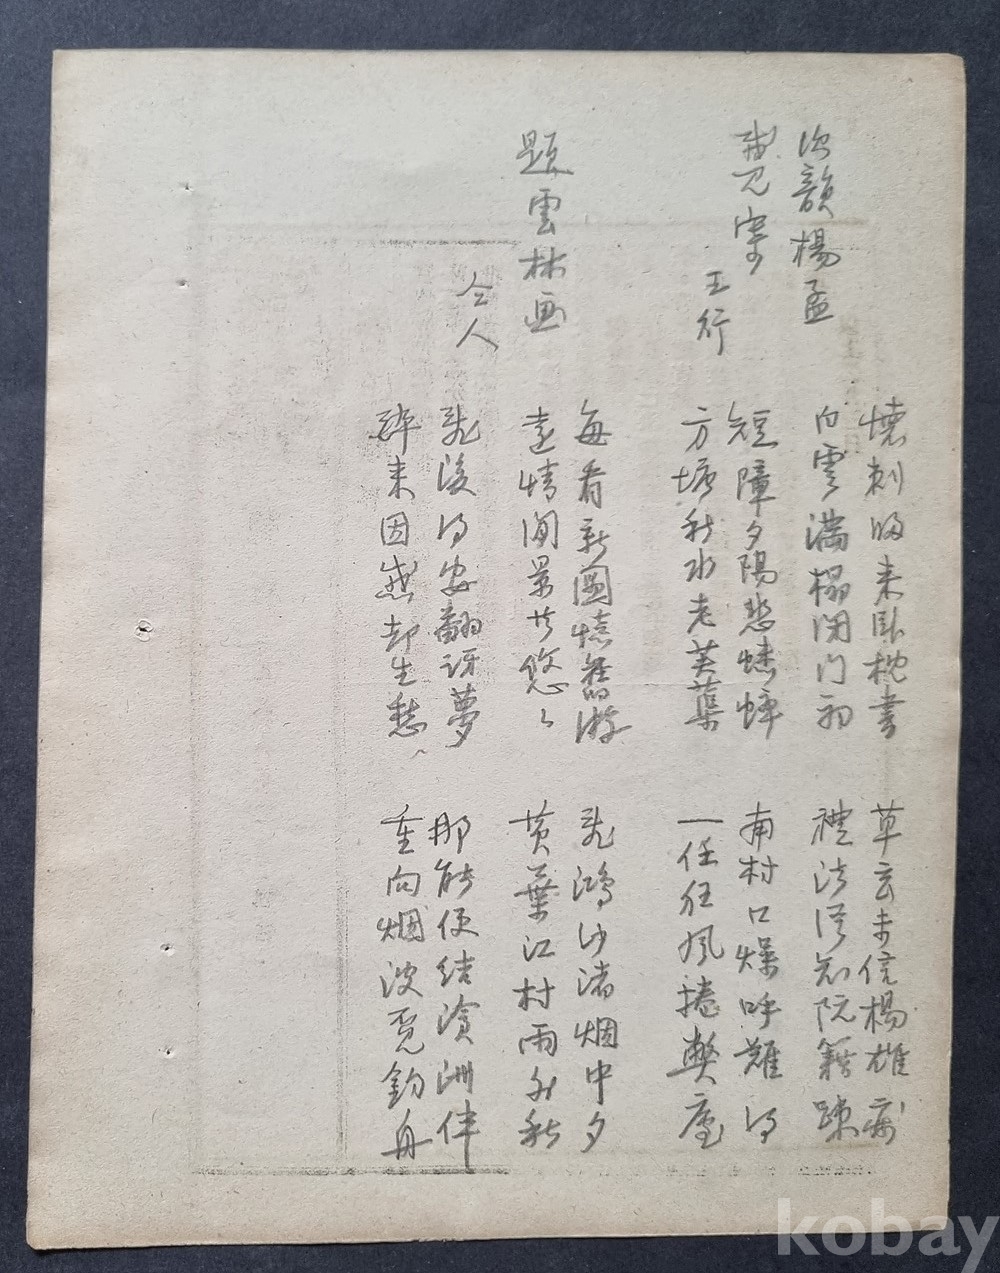 次韻楊孟
載見寄
王行
懷刺歸來臥枕書 草玄未信楊雄
白雲滿榻閉門初 禮法知阮籍疎
短障夕陽悲蟋蟀 南村口燥呼難得
方塘秋水老芙蕖 一任狂風捲弊廬
題雲林画
仝人
每看新圖憶舊游 亂鴻沙渚烟中夕
遠情閒景共悠々 黃葉江村雨外秋
亂後得安翻訝夢 那能便結滄洲伴
醉来因感却生愁 重向烟波覓釣舟
kobay